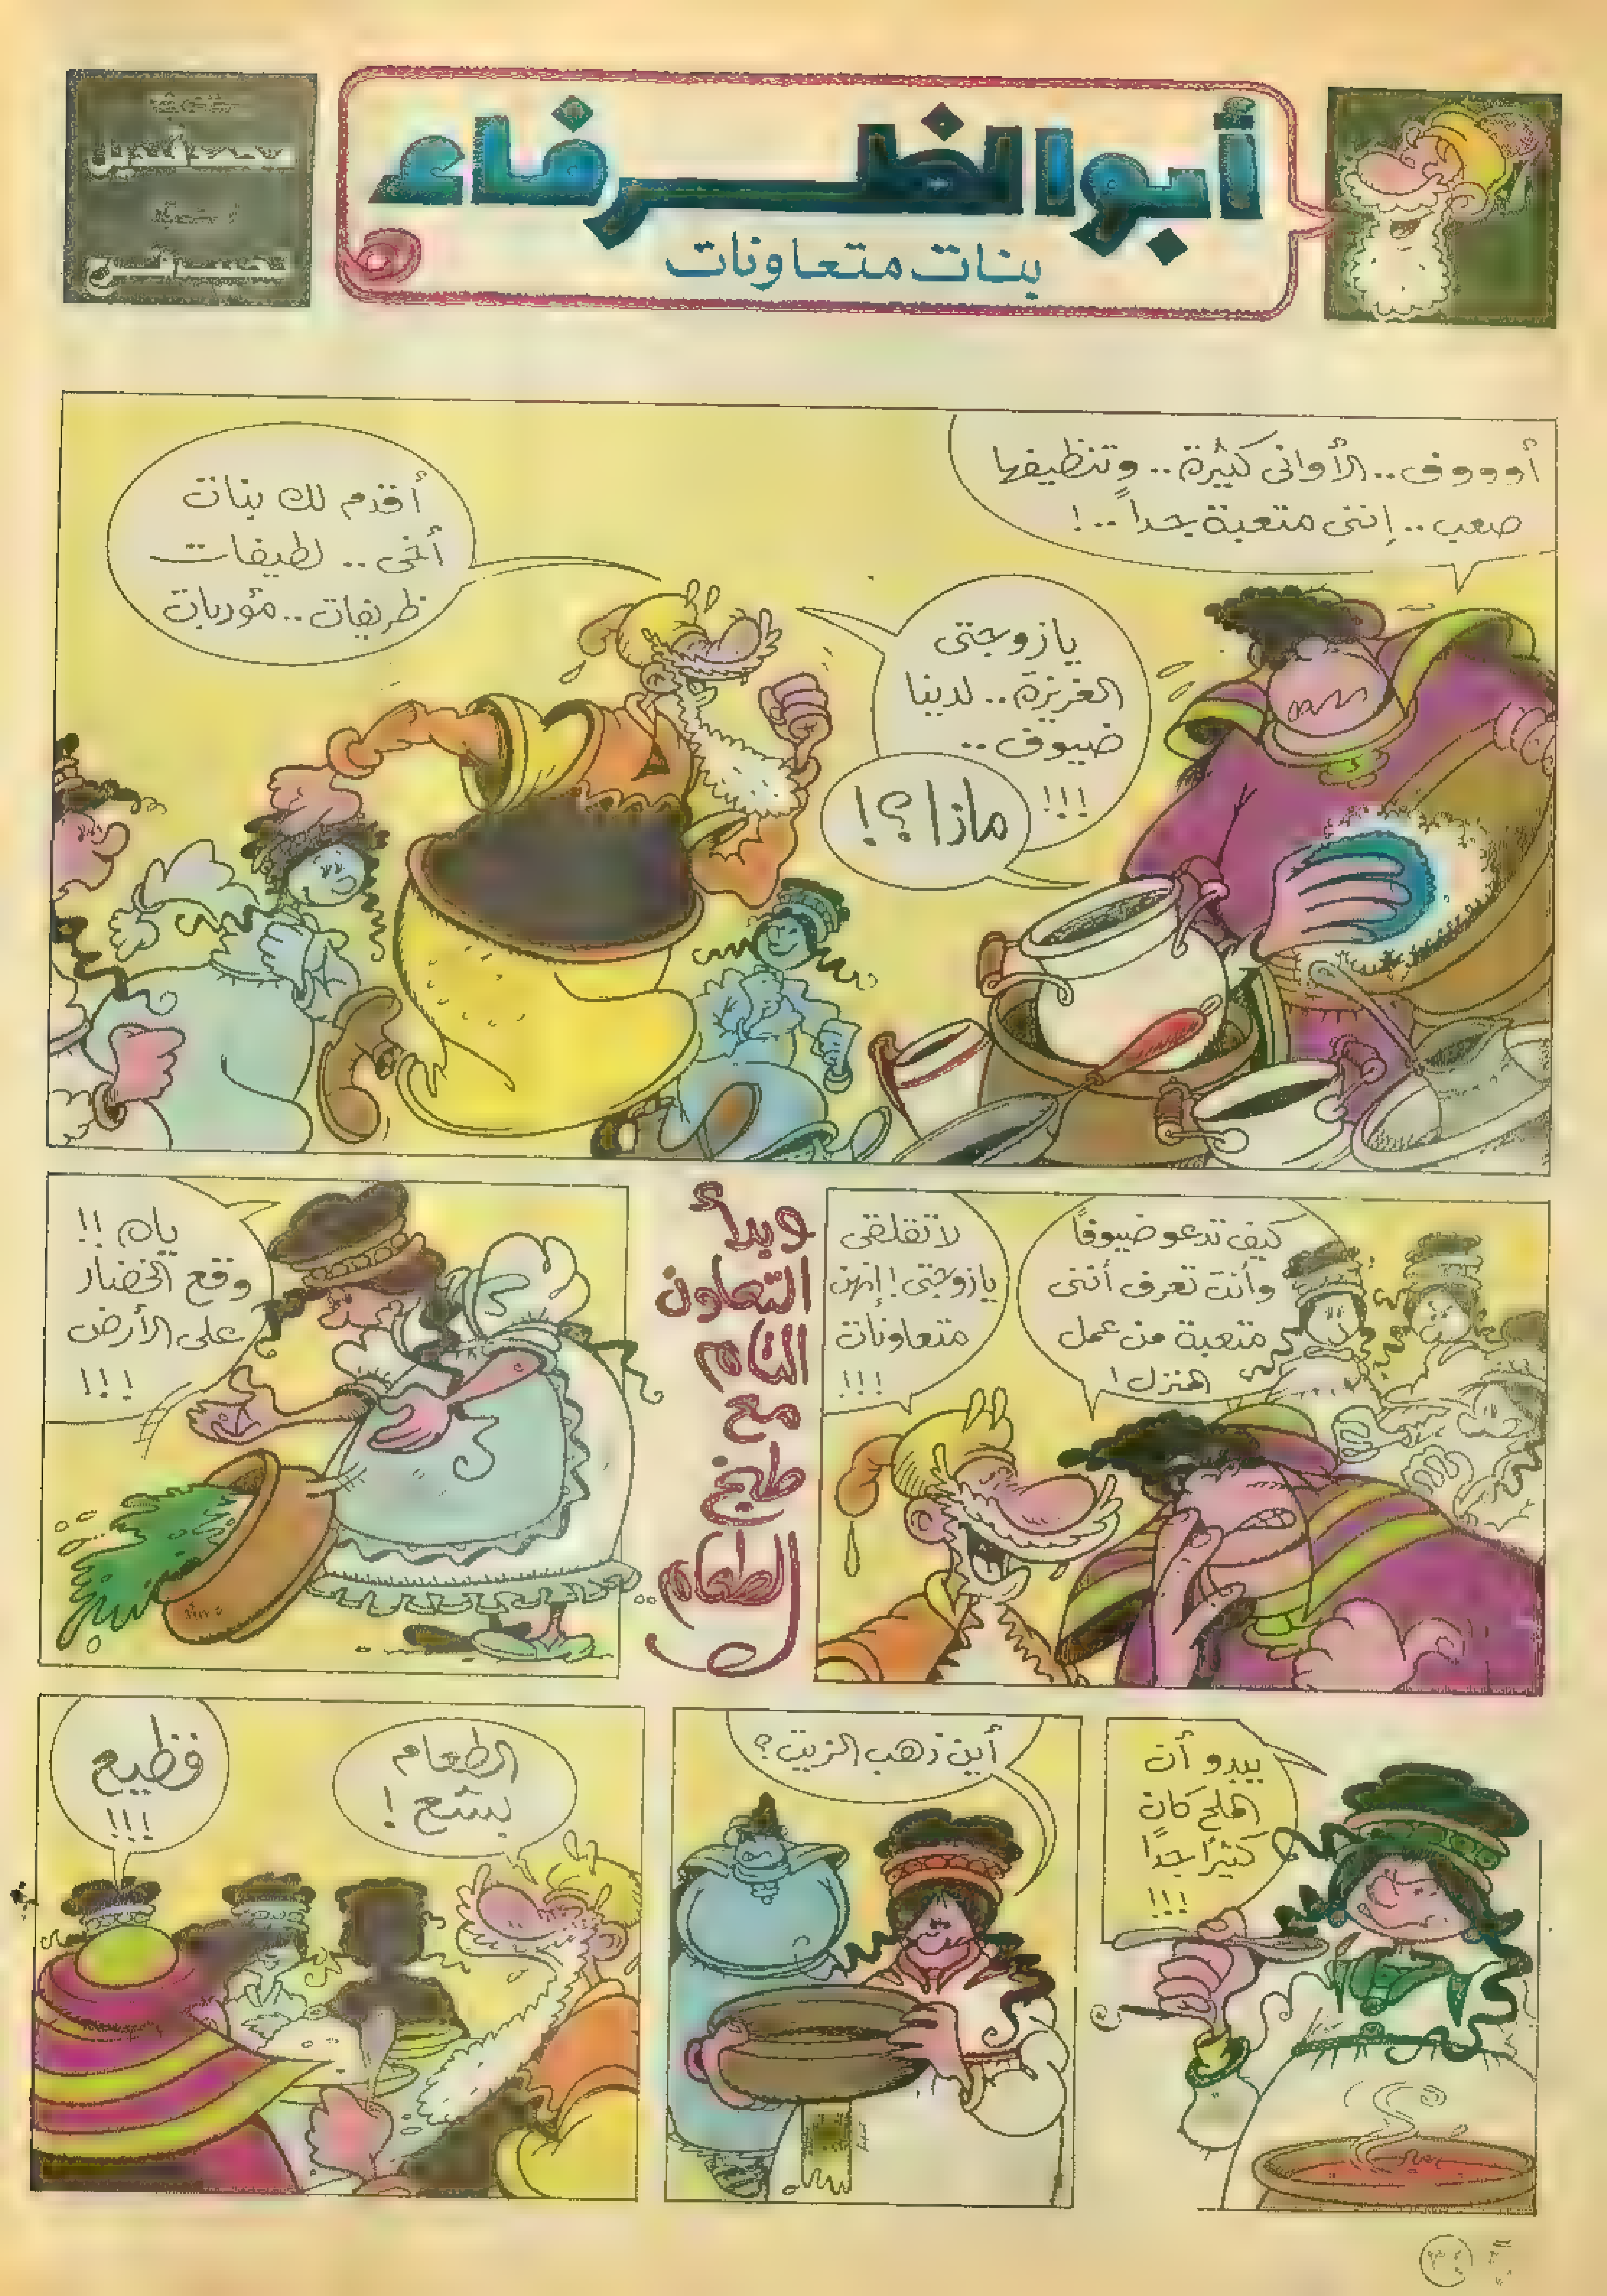 أبو الظرفاء
بنات متعاونات
أوووف.. الأوانى كثيرة.. وتنظيفها
صعب.. إننى متعبة جداً..!
يازوجتى
العزيزة.. لدينا
ضيوف..
!!!
ماذا؟!
أقدم لك بنات
أخى.. لطيفات
ظريفات.. مؤدبات
كيف تدعو ضيوفاً
وأنت تعرف أننى
متعبة من عمل
المنزل!
لا تقلقى
يازوجتى! إنهن
متعاونات
!!!
وبدأ
التعاون
التام
مع
طبخ
الطعام..
ياه!!
وقع الخضار
على الأرض
!!!
يبدو أن
الملح كان
كثيراً جداً
!!!
أين ذهب الزيت؟
الطعام
بشع!
فظيع
!!!